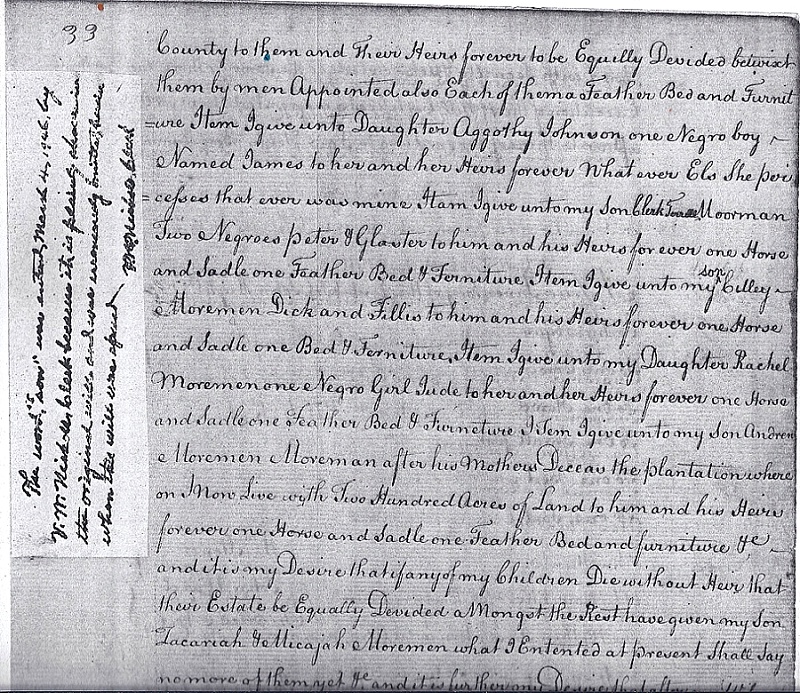 33
County to them and Their Heirs forever to be Equilly Devided betwixt
them by men Appointed also Each of them a Feather Bed and Furnit
=ure Item I give unto Daughter Aggothy Johnson one Negro boy
Named James to her and her Heirs forever What ever Els She peri
=cesses that ever was mine Item I give unto my Son Clerk Moorman
Two Negroes Peter & Glaster to him and his Heirs for ever one Horse
and Sadle one Feather Bed & Ferniture Item I give unto my son Cilley
Moremen Dick and Fillis to him and his Heirs forever one Horse
and Sadle one Bed & Ferniture, Item I give unto my Daughter Rachel
Moremen one Negro Girl Jude to her and her Heirs forever one Horse
and Sadle one Feather Bed & Furneture Item I give unto my Son Andrew
Moremen Moreman after his Mothers Deceas the plantation where
on I Now Live with Two Hundred Acres of Land to him and his Heirs
forever one Horse and Sadle one Feather Bed and furniture &c
and it is my Desire that if any of my Children Die without Heir that
their Estate be Equally Devided a Mongst the Rest have given my Son
Zacariah & Micajah Moremen what I Entented at present Shall Say
no more of them yet &c and it is further my Desire that
The word, "son" was entered, March 4, 1946, by
V. W. Nichols, clerk because it is plainly shown in
the original will, and was erroneously omitted
when this will was
Nichols, Clerk